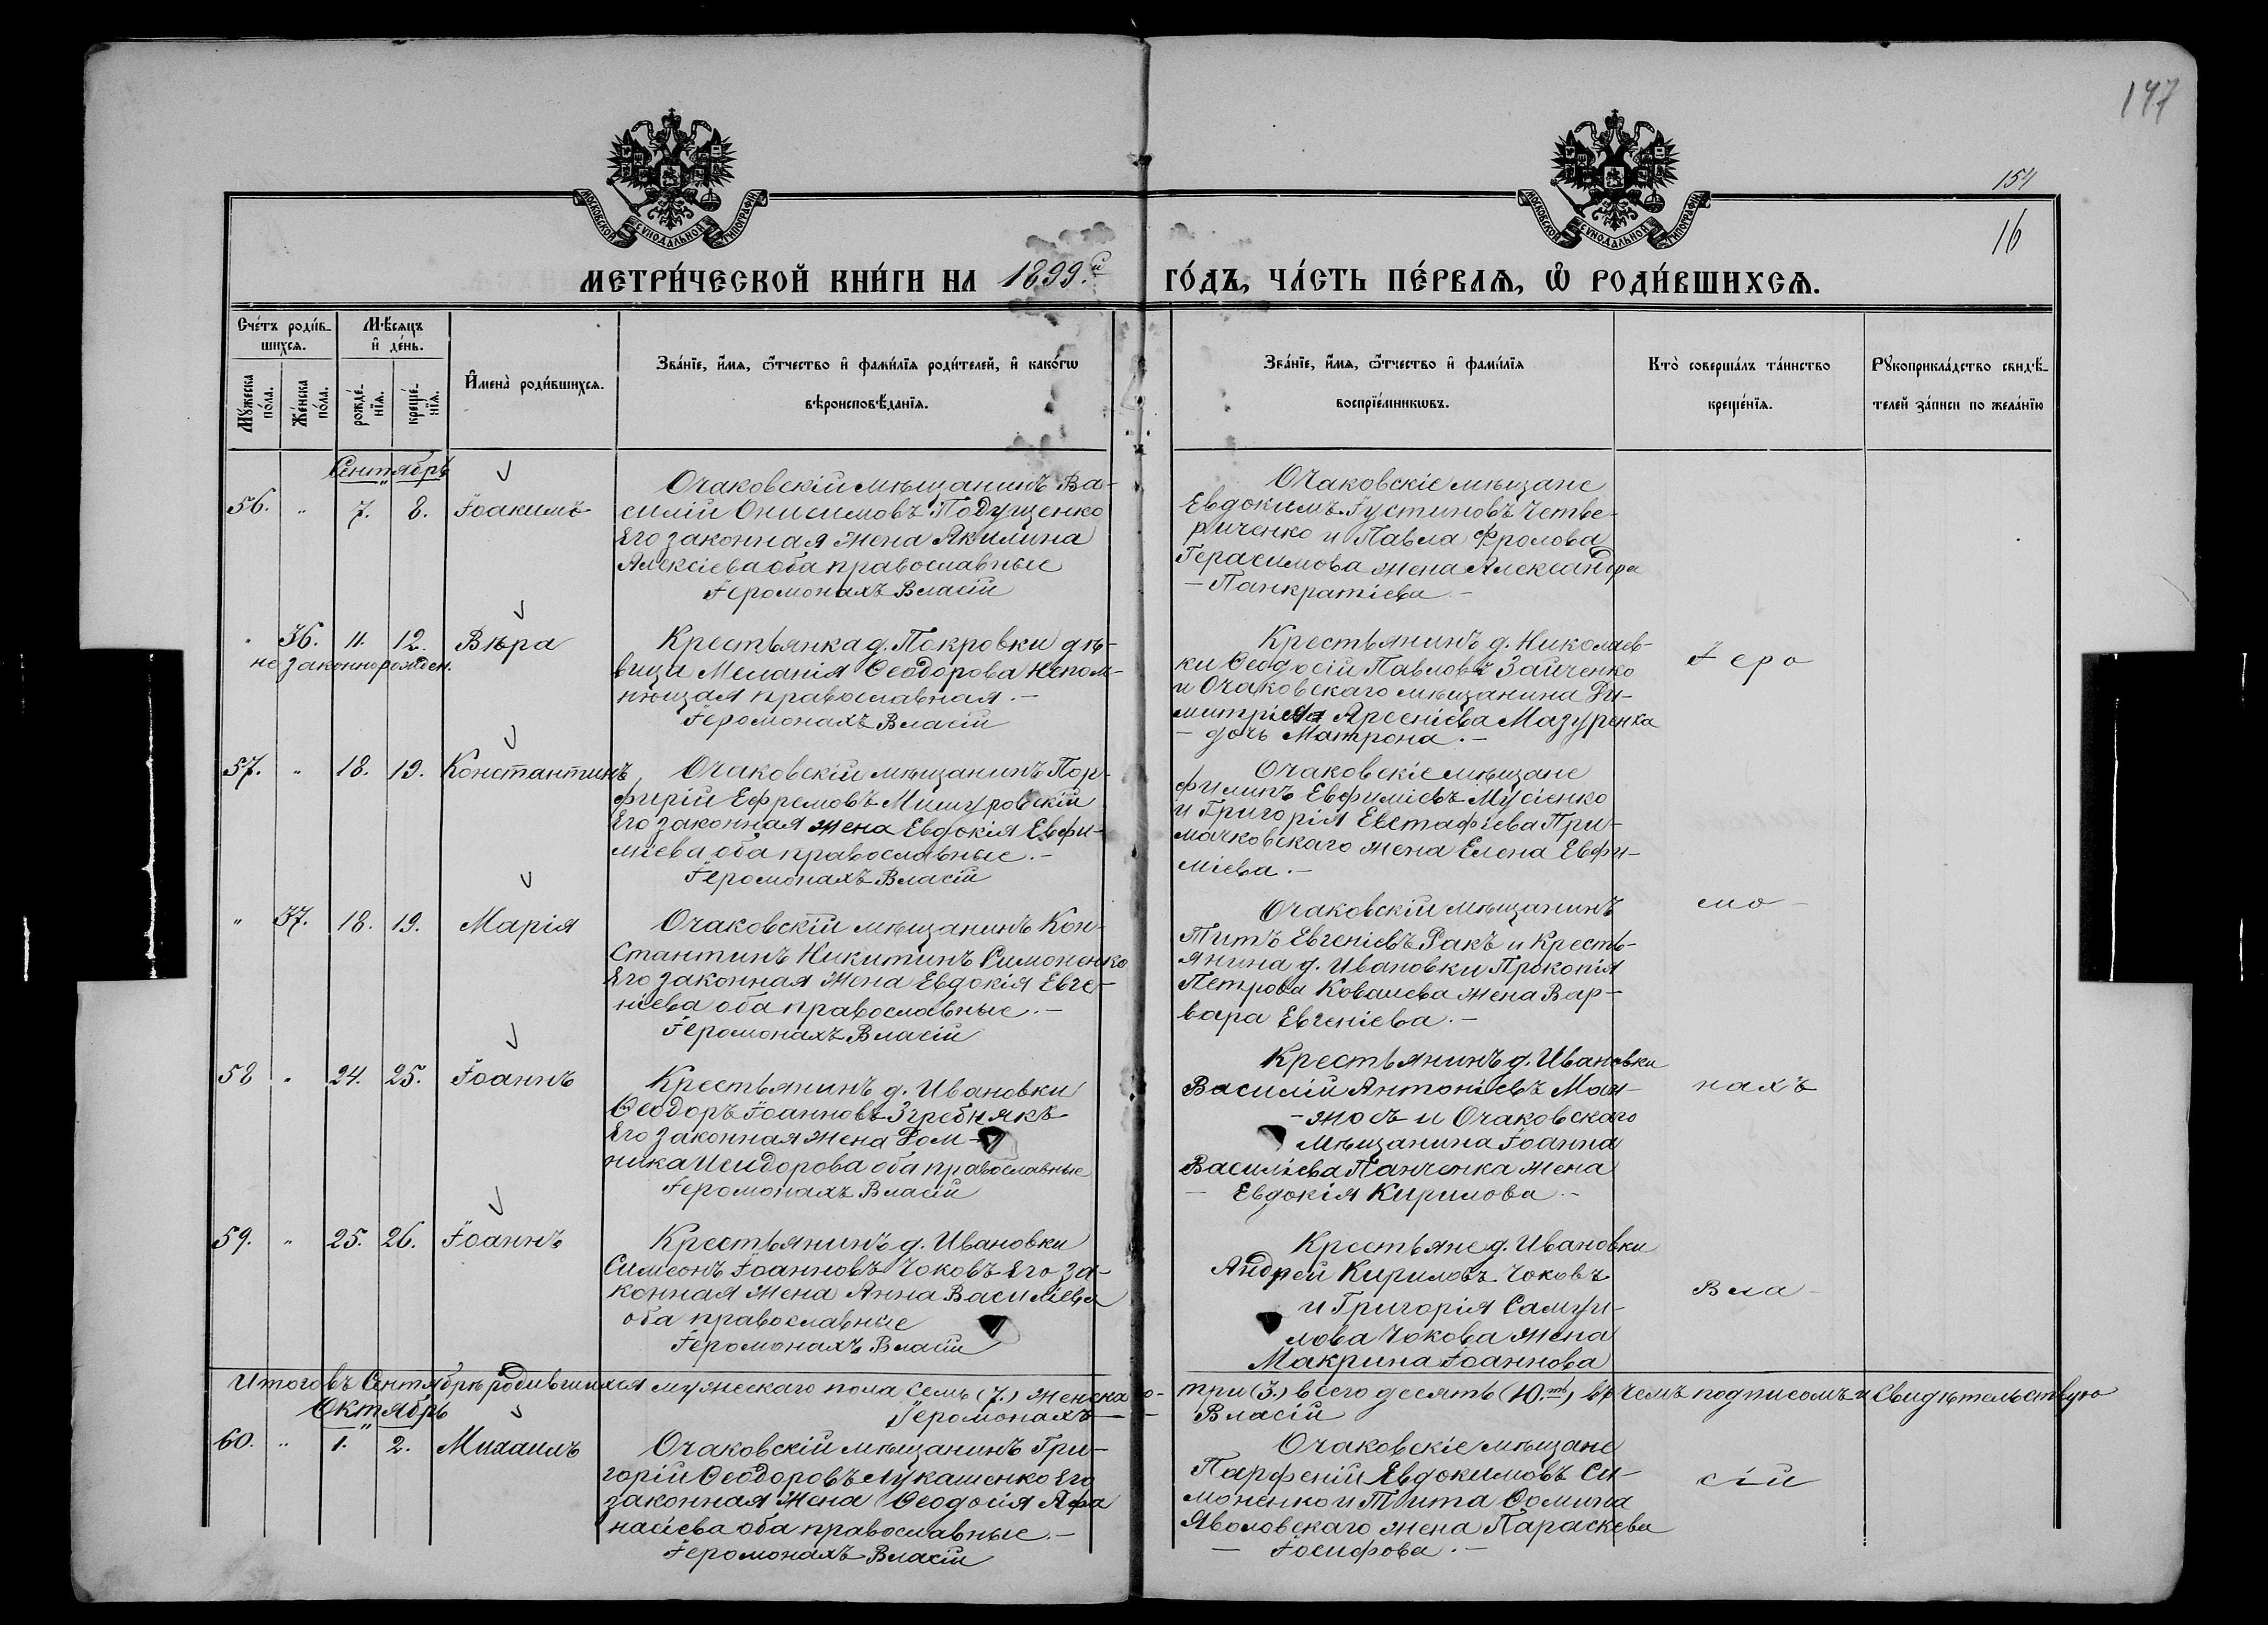 147
154
16
МОСКОВСКОЙ СѴНОДАЛЬНОЙ ТИПОГРАФІИ
МОСКОВСКОЙ СѴНОДАЛЬНОЙ ТИПОГРАФІИ
МЕТРИ́ЧЕСКОЙ КНИ́ГИ НА 1899.й ГО́ДЪ, ЧА́СТЬ ПЕ́РВАѦ, Ѡ҆ РОДИ́ВШИХСѦ.
Сче́тъ роди́в-
шихсѧ.
Мꙋ́жеска по́ла.
Же́нска по́ла.
Мѣ́сѧцъ
и҆ де́нь.
рожде́-
нїѧ.
креще́-
нїѧ.
И҆мена̀ роди́вшихсѧ.
Зва́нїе, и҆́мѧ, ѻ҆́тчество и҆ фами́лїѧ роди́телей, и҆ како́гѡ
вѣроисповѣ́данїѧ.
Зва́нїе, и҆́мѧ, ѻ҆́тчество и҆ фами́лїѧ
воспрїе́мникѡвъ.
Кто̀ соверша́лъ та́инство
креще́нїѧ.
Рꙋкоприкла́дство свидѣ́-
телей за́писи по жела́нїю
Сентябрь
56. " 7. 8. Іоакимъ
Очаковскій мѣщанинъ Ва-
силій Онисимовъ Подущенко
Его законная жена Акилина
Алексіева оба православные
Іеромонахъ Власій
Очаковскіе мѣщане
Евдокимъ Іустиновъ Четве-
риченко и Павла Фролова
Герасимова жена Александра
— Панкратіева. —
" 36. 11. 12. Вѣра
незаконнорожден.
Крестьянка д. Покровки дѣ-
вица Меланія Ѳеодорова Непом-
нющая православная. —
Іеромонахъ Власій
Крестьянинъ д. Николаев-
ки Ѳеодосій Павловъ Зайченко
и Очаковскаго мѣщанина Ди-
митрія Арсеніева Мазуренка
— дочь Матрона. —
Іеро
57. " 18. 19. Константинъ
Очаковскій мѣщанинъ Пор-
фирій Ефремовъ Мишуровскій
Его законная жена Евдокія Евфи-
міева оба православные. —
Іеромонахъ Власій
Очаковскіе мѣщане
Филипъ Евфиміевъ Мусіенко
и Григорія Евстафіева При-
мачковскаго жена Елена Евфи-
міева. —
" 37. 18. 19. Марія
Очаковскій мѣщанинъ Кон-
стантинъ Никитинъ Симоненко
Его законная жена Евдокія Евге-
ніева оба православные. —
Іеромонахъ Власій
Очаковскій мѣщанинъ
Титъ Евгеніевъ Ракъ и Кресть-
янина д. Ивановки Прокопія
Петрова Ковалева жена Вар-
вара Евгеніева. —
мо-
58 " 24. 25. Іоаннъ
Крестьянинъ д. Ивановки
Ѳеодоръ Іоанновъ Згребнякъ
Его законная жена Дом-
ника Исидорова оба православные
Іеромонахъ Власій
Крестьянинъ д. Ивановки
Василій Антоніевъ
и Очаковскаго
Мѣщанина Іоанна
Василіева Панченка жена
— Евдокія Кирилова. —
нахъ
59. " 25. 26. Іоаннъ
Крестьянинъ д. Ивановки
Симеонъ Іоанновъ Чоковъ Его за-
конная жена Анна Василіева
оба православные
Іеромонахъ Власій
Крестьяне д. Ивановки
Андрей Кириловъ Чоковъ
и Григорія Самуи-
лова Чокова жена
Макрина Іоаннова
Вла-
Итого въ Сентябрѣ родившихся мужескаго пола семь (7.) женска го- три (3.) всего десять (10.ть) въ чемъ подписомъ и свидѣтельствую
Іеромонахъ — — Власій
Октябрь
60. " 1. 2. Михаилъ
Очаковскій мѣщанинъ Гри-
горій Ѳеодоровъ Лукашенко Его
законная жена Ѳеодосія Афа
насіева оба православные. —
Іеромонахъ Власій
Очаковскіе мѣщане
Парфеній Евдокимовъ Си-
моненко и Тита Ѳомина
Яволовскаго жена Параскева
— Іосифова. —
сій